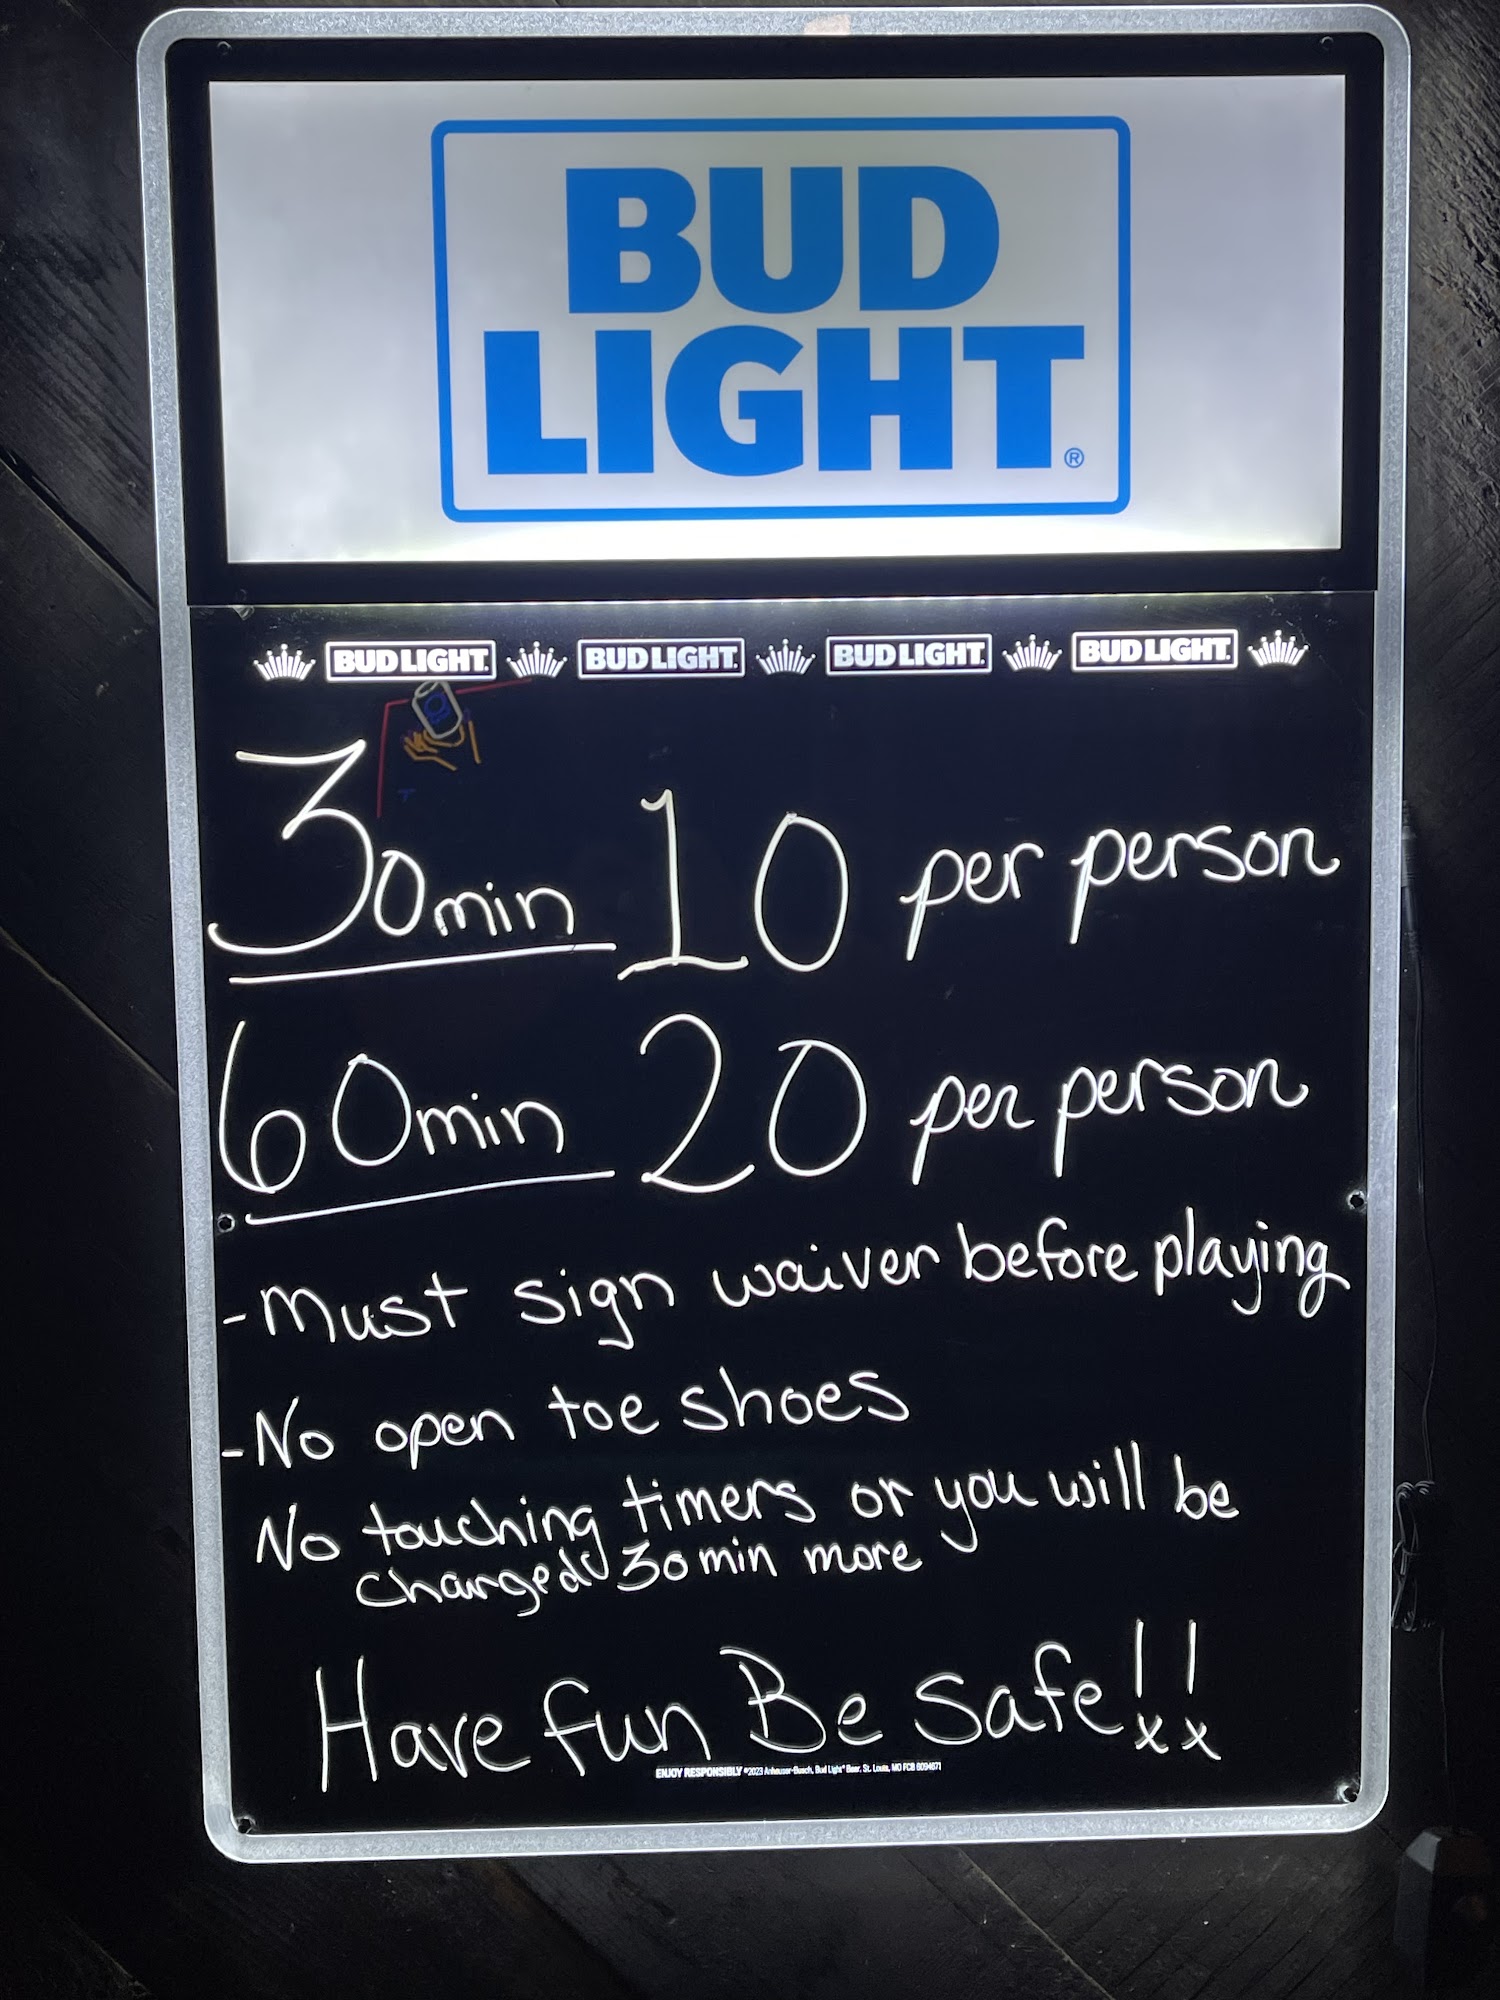 BUD
LIGHT®
BUD LIGHT. BUD LIGHT. BUD LIGHT. BUD LIGHT.
30min 10 per person
60min 20 per person
-Must sign waiver before playing
-No open toe shoes
No touching timers or you will be
charged 30 min more
Have fun Be safe!!
xx
ENJOY RESPONSIBLY ©2023 Anheuser-Busch, Bud Light® Beer, St. Louis, MO FCB